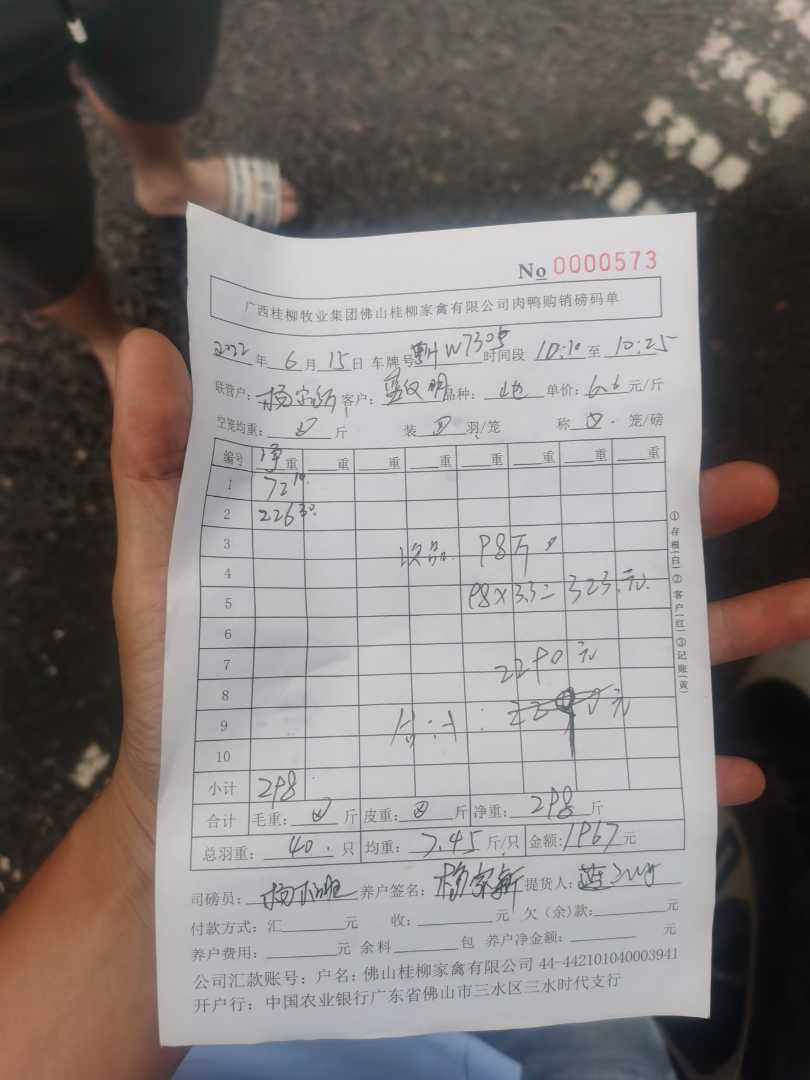 No 0000573
广西桂柳牧业集团佛山桂柳家禽有限公司肉鸭购销磅码单
2022年 6月 15日 车牌号 W730 时间段 10:10 至 10:25
联营户: 杨 客户: 品种: 单价: 6.6 元/斤
空笼均重: 斤 装 羽/笼 称 笼/磅
编号 净重 重 重 重 重 重 重 重
1 72 10
2 226 30
3 次品 98斤
4
5 98×3.3=323.元
6
7 2290元
8
9 合计:
10
小计 298
合计 毛重: 斤 皮重: 斤 净重: 298 斤
总羽重: 40. 只 均重: 7.45 斤/只 金额: 1967 元
司磅员: 杨 养户签名: 杨家新 提货人: 蓝
付款方式: 汇 元 收: 元 欠(余)款: 元
养户费用: 元 余料 包 养户净金额: 元
公司汇款账号: 户名: 佛山桂柳家禽有限公司 44-442101040003941
开户行: 中国农业银行广东省佛山市三水区三水时代支行
①存根(白)②客户(红)③记账(黄)